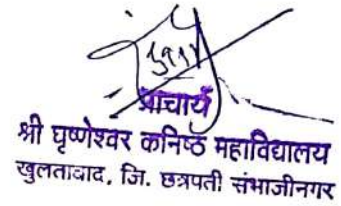 प्राचार्य
श्री घृष्णेश्वर कनिष्ठ महाविद्यालय
खुलताबाद, जि. छत्रपती संभाजीनगर